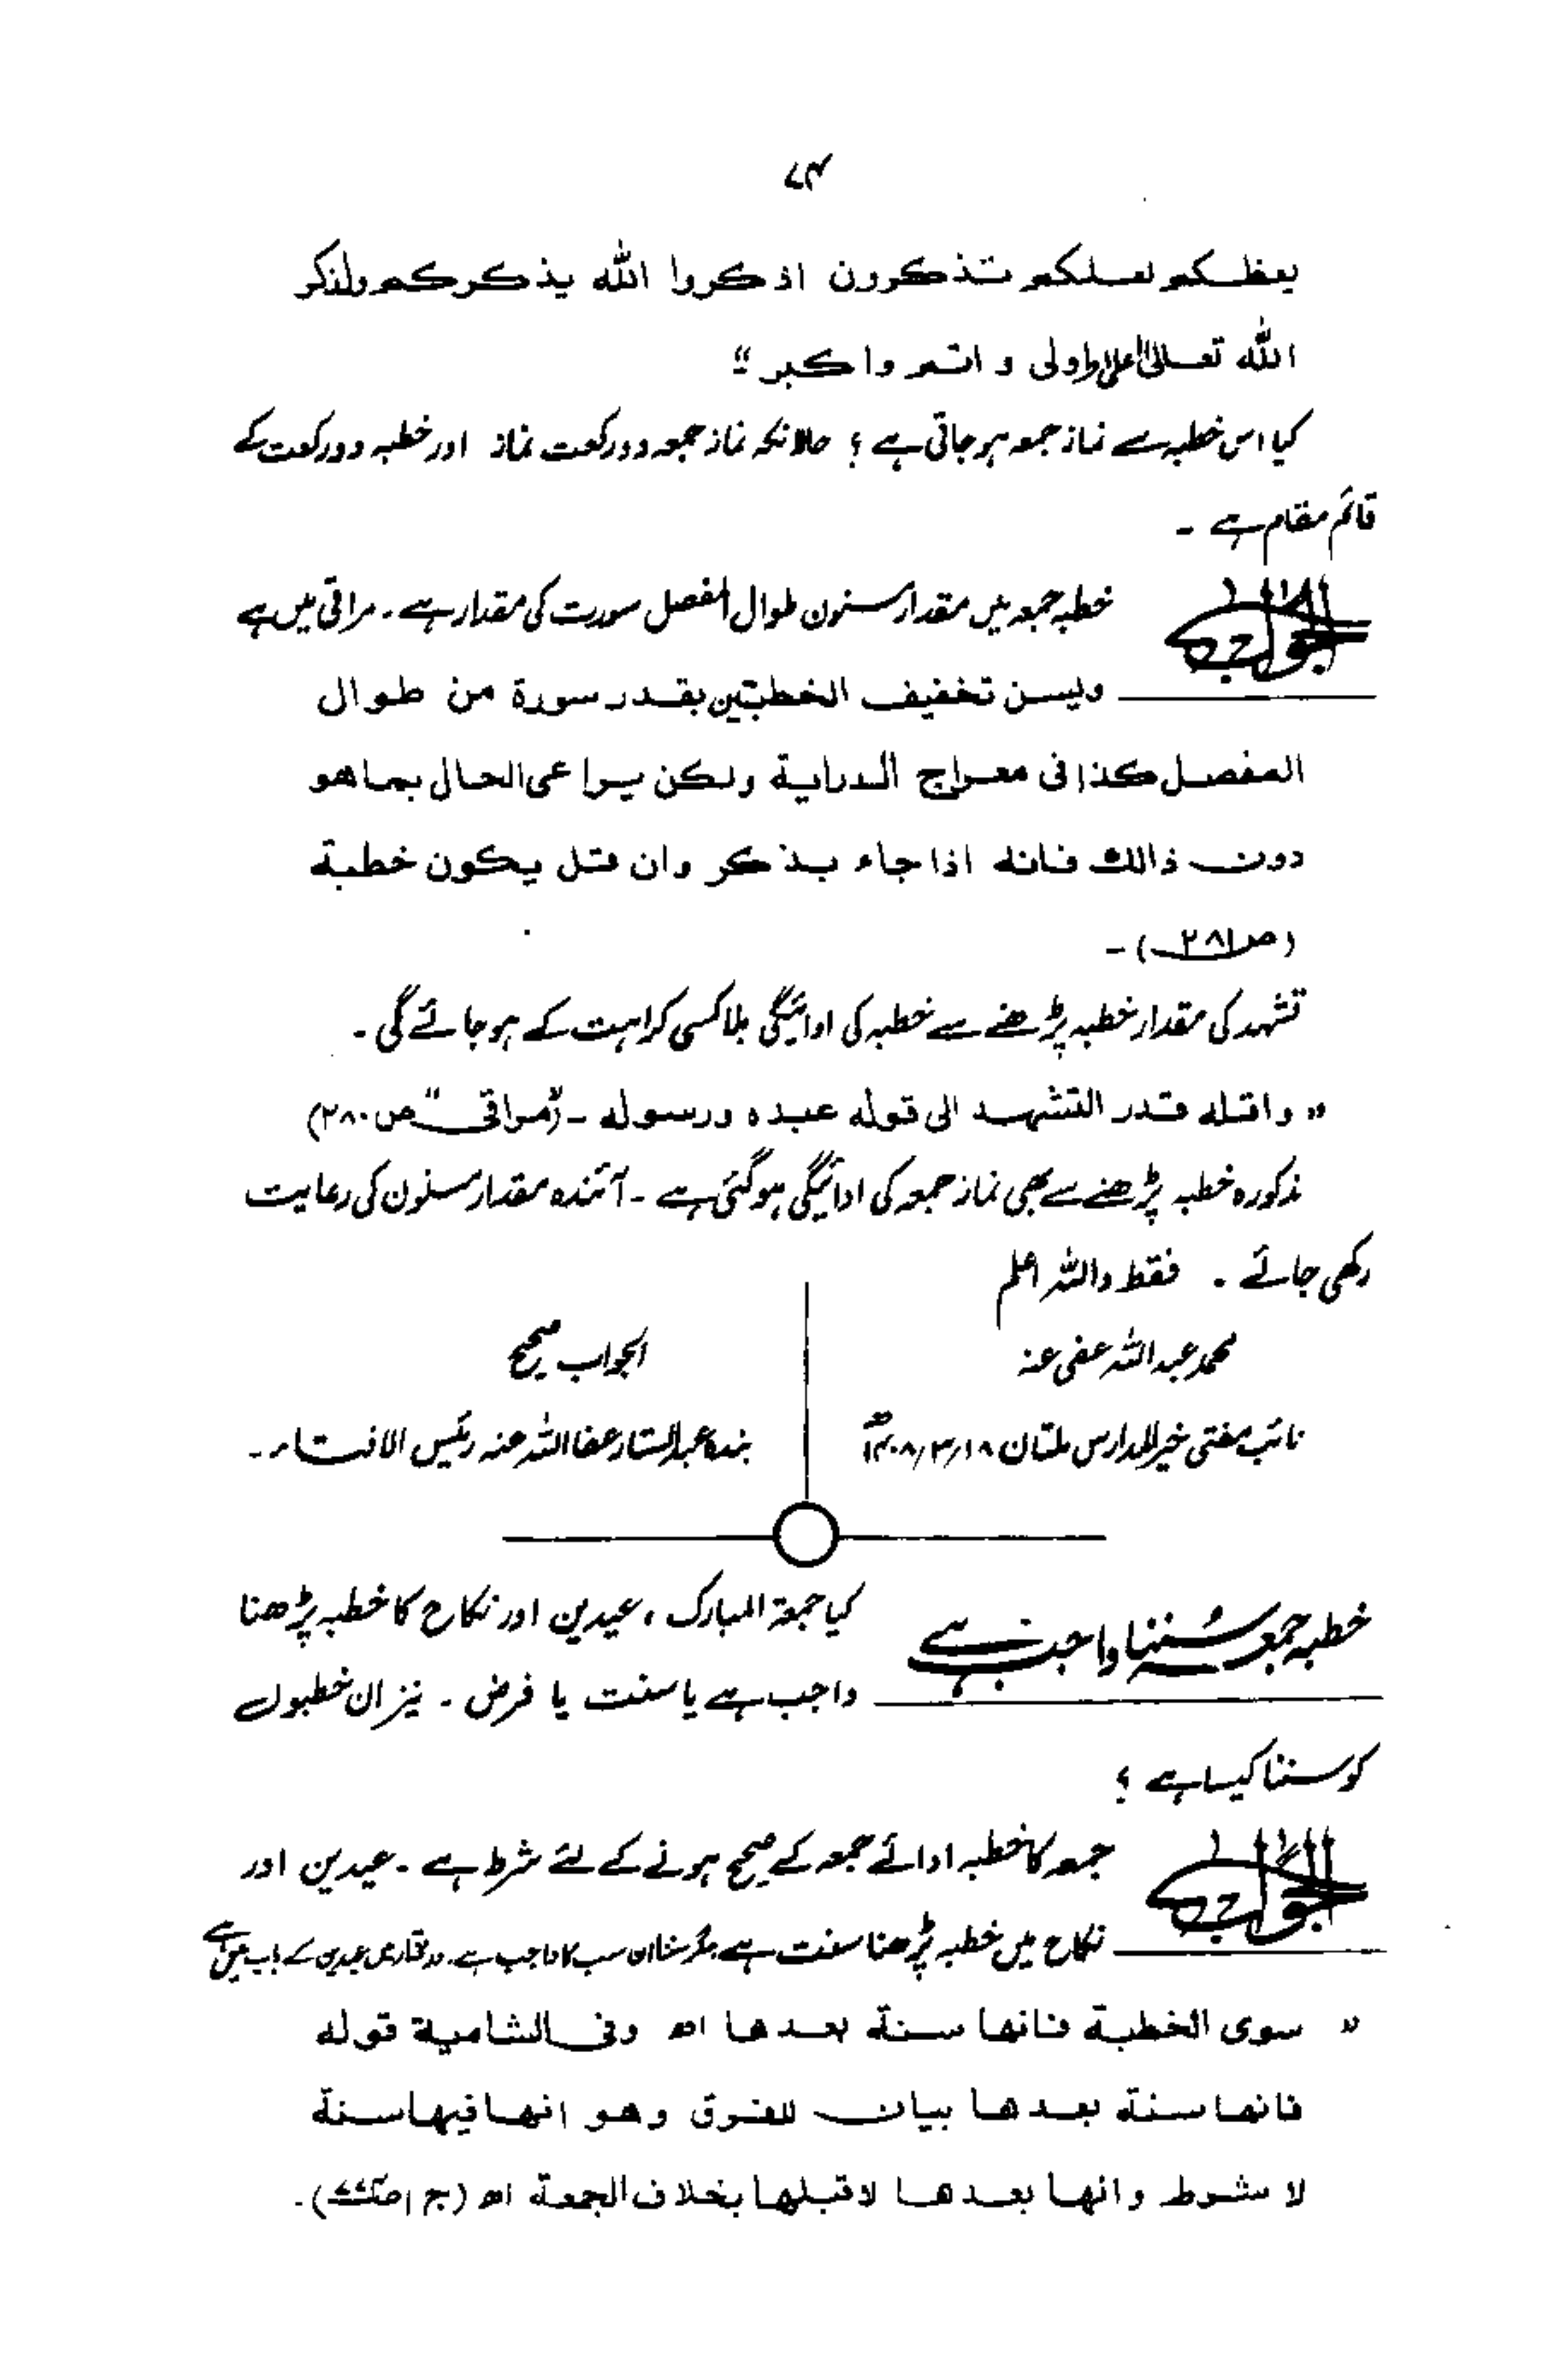 ۷۴
يعظكم لعلكم تذكرون اذكروا الله يذكركم ولذكر
الله تعالىٰ اعلىٰ واولى و اتم واكبر"
کیا اس خطبہ سے نماز جمعہ ہو جاتی ہے ؟ حالانکہ نماز جمعہ دو رکعت نماز اور خطبہ دو رکعت کے
قائم مقام ہے ۔
الجواب خطبہ جمعہ میں مقدار مسنون طوال المفصل سورت کی مقدار ہے ۔ مراقی میں ہے
وليسن تخفيف الخطبتين بقدر سورة من طوال
المفصل كذا فى معراج الدراية ولكن يراعى الحال بما هو
دون ذالك فانه اذا جاء بذكر وان قل يكون خطبة
(ص ۲۸۱) ۔
تشہد کی مقدار خطبہ پڑھنے سے خطبہ کی ادائیگی بلا کسی کراہت کے ہو جائے گی ۔
" واقله قدر التشهد الى قوله عبده ورسوله ۔ (مراقی ص ۲۸۰)
مذکورہ خطبہ پڑھنے سے بھی نماز جمعہ کی ادائیگی ہو گئی ہے ۔ آئندہ مقدار مسنون کی رعایت
رکھی جائے ۔ فقط واللہ اعلم
محمد عبداللہ عفی عنہ
نائب مفتی خیر المدارس ملتان ۱۸/۳/۱۴۰۸ھ
الجواب صحیح
بندہ عبدالستار عفا اللہ عنہ رئیس الافتاء ۔
خطبہ جمعہ سُننا واجب ہے
کیا جمعۃ المبارک ، عیدین اور نکاح کا خطبہ پڑھنا
واجب ہے یا سنت یا فرض ۔ نیز ان خطبوں
کو سننا کیسا ہے ؟
الجواب جمعہ کا خطبہ ادائے جمعہ کے صحیح ہونے کے لئے شرط ہے ۔ عیدین اور
نکاح میں خطبہ پڑھنا سنت ہے مگر سننا ان سب کا واجب ہے ۔ در مختار میں عیدین کے باب میں ہے
" سوى الخطبة فانها سنة بعدها اھ وفى الشامية قوله
فانها سنة بعدها بيان للفرق وهو انها فيها سنة
لا شرط وانها بعدها لا قبلها بخلاف الجمعة اھ (ج ۱ ) ۔